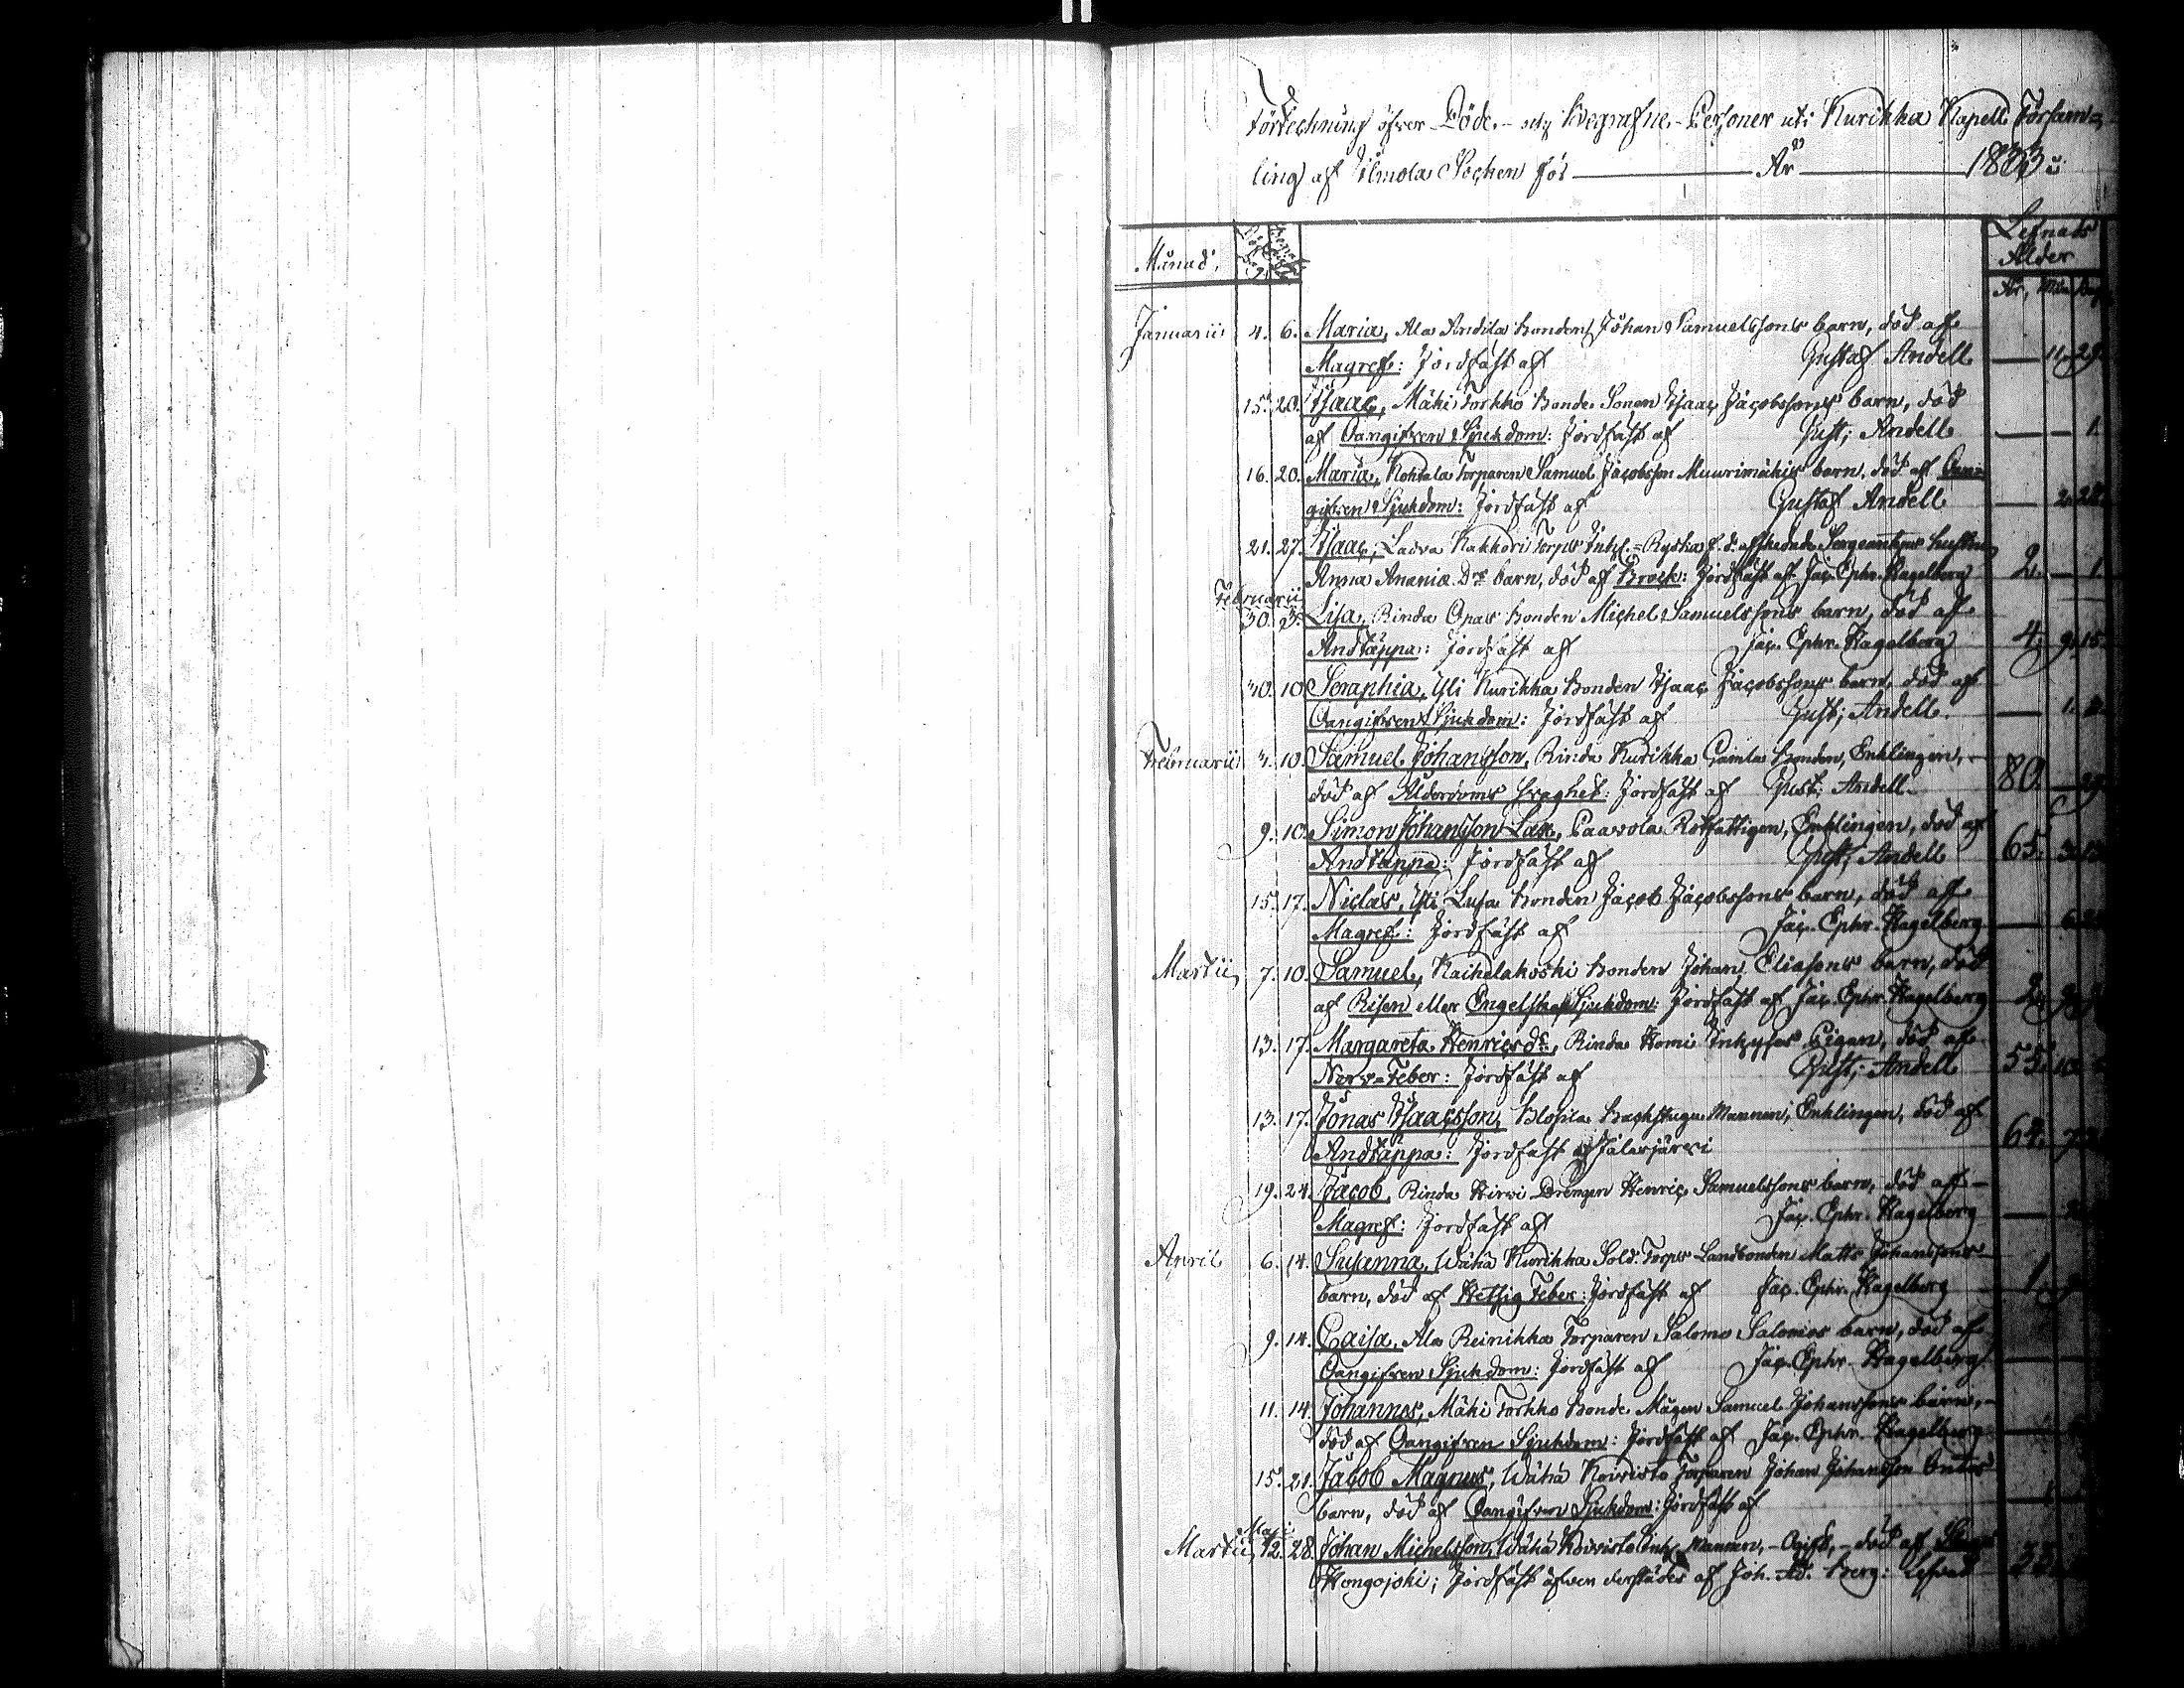 Förtechning öfver Döde- och Begrafne-Personer uti Kurikka Kapell Församling
ling af Ilmola Sochen för År 1833:
Månad,
Lefnads
Ålder
År, Mån. Dag.
Januarii 4. 6. Maria, Ala Andila bonden Johan Samuelssons barn, död af
Magref: Jordfäst af Gustaf Andell — 11. 29.
15. 20. Isaac, Mäki Torkko Bonde Sonen Isaac Jacobssons barn, död
af Oangifven Sjukdom: Jordfäst af Gust; Andell — — 1.
16. 20. Maria, Kohtala Torparen Samuel Jacobsson Muurimäkis barn, död af Oan-
gifven Sjukdom: Jordfäst af Gustaf Andell — 2. 28.
21. 27. Isaac, Ladva Kakkori Torps Inhs. Ryska f. d. afskedade Sergeantens hustru
Anna Ananiæ Dr barn, död af Bråck: Jordfäst af Jac. Ephr. Hagelberg 2. — 1.
Februarii
30. 3. Lisa, Rinda Opas bonden Michel Samuelssons barn, död af
Andtäppa: Jordfäst af Jac. Ephr. Hagelberg 4. 9. 15.
30. 10. Seraphia, Yli Kurikka bonden Isaac Jacobssons barn, död af
Oangifven Sjukdom: Jordfäst af Gust; Andell. — 1.
Februarii 3. 10. Samuel Johansson, Rinda Kurikka Gamla Bonden, Enklingen,
död af Ålderdoms svaghet: Jordfäst af Gust; Andell. 80. — 29.
9. 10. Simon Johansson Lax, Paavola Rotfattigen, Enklingen, död af
Andtäppa: Jordfäst af Gust; Andell 65. 3.
15. 17. Niclas, Yli Lusa bonden Jacob Jacobssons barn, död af
Magref: Jordfäst af Jac. Ephr. Hagelberg — 6.
Martii, 7. 10. Samuel, Kaihelakoski bonden Johan Eliasons barn, död
af Risen eller Engelska Sjukdom: Jordfäst af Jac. Ephr. Hagelberg 2.
13. 17. Margareta Henricsdr, Rinda Homi Inhyses Pigan, död af
Nerv-Feber: Jordfäst af Gust; Andell 55. 10.
13. 17. Jonas Isaacsson, Klosila Backstugu Mannen, Enklingen, död af
Andtäppa: Jordfäst af Jalasjärvi 64. 7.
19. 24. Jacob, Rinda Hirvi Drengen Henric Samuelssons barn, död af
Magref: Jordfäst af Jac. Ephr. Hagelberg —
April 6. 14. Susanna, Wähä Kurikka Sold. Torps Landbonden Matts Johanssons
barn, död af Hetsig Feber: Jordfäst af Jac. Ephr. Hagelberg 1.
9. 14. Caisa, Ala Reinikka Torparen Salomo Salomos barn, död af
Oangifven Sjukdom: Jordfäst af Jac. Ephr. Hagelberg
11. 14. Johannes, Mäki Torkko Bonde Mågen Samuel Johanssons barn,
död af Oangifven Sjukdom: Jordfäst af Jac. Ephr. Hagelberg
15. 21. Jacob Magnus, Wähä Koivisto Torparen Johan Johansson
barn, död af Oangifven Sjukdom: Jordfäst af
Maji
Martii, 12. 28. Johan Michelsson, Wähä Koivisto Inhs. Mannen, - Ogift, - död af
Hongojoki; Jordfäst äfven derstädes af Joh. Ad. Berg: 33.